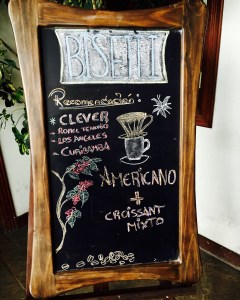 BISETTI
Recomendación:
CLEVER
LOS ANGELES
CURIBAMBA
AMERICANO
+
CROISSANT
MIXTO